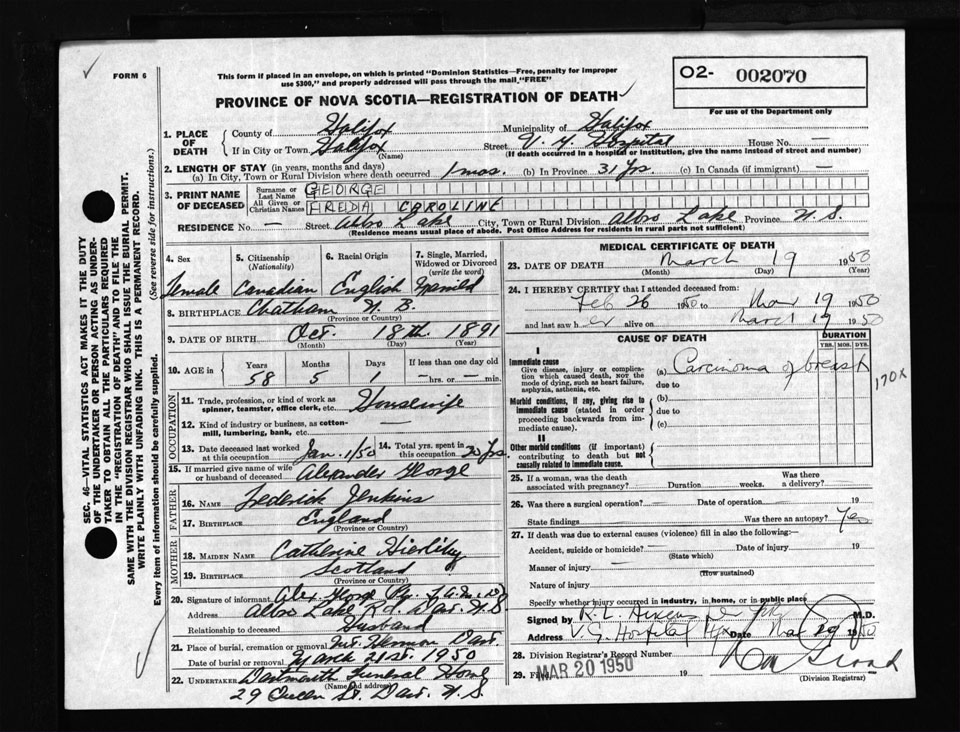 FORM 6
This form if placed in an envelope, on which is printed "Dominion Statistics—Free, penalty for improper
use $300," and properly addressed will pass through the mail, "FREE"
O2- 002070
For use of the Department only
PROVINCE OF NOVA SCOTIA—REGISTRATION OF DEATH
SEC. 46—VITAL STATISTICS ACT MAKES IT THE DUTY
OF THE UNDERTAKER OR PERSON ACTING AS UNDER-
TAKER TO OBTAIN ALL THE PARTICULARS REQUIRED
IN THE "REGISTRATION OF DEATH" AND TO FILE THE
SAME WITH THE DIVISION REGISTRAR WHO SHALL ISSUE THE BURIAL PERMIT.
WRITE PLAINLY WITH UNFADING INK. THIS IS A PERMANENT RECORD.
(See reverse side for instructions.)
Every item of information should be carefully supplied.
1. PLACE OF DEATH
County of Halifax Municipality of Halifax
If in City or Town Halifax (Name) Street V. G. Hospital House No. —
(If death occurred in a hospital or institution, give the name instead of street and number)
2. LENGTH OF STAY (in years, months and days)
(a) In City, Town or Rural Division where death occurred 1 mos. (b) In Province 31 Yrs. (c) In Canada (if immigrant) —
3. PRINT NAME OF DECEASED
Surname or Last Name GEORGE
All Given or Christian Names FREDA CAROLINE
RESIDENCE No. — Street Albro Lake City, Town or Rural Division Albro Lake Province N. S.
(Residence means usual place of abode. Post Office Address for residents in rural parts not sufficient)
4. Sex female
5. Citizenship (Nationality) Canadian
6. Racial Origin English
7. Single, Married, Widowed or Divorced (write the word)
8. BIRTHPLACE Chatham N. B.
(Province or Country)
9. DATE OF BIRTH Oct. 18th 1891
(Month) (Day) (Year)
10. AGE in Years 58 Months 5 Days 1 If less than one day old — hrs. or — min.
OCCUPATION
11. Trade, profession, or kind of work as spinner, teamster, office clerk, etc. Housewife
12. Kind of industry or business, as cotton-mill, lumbering, bank, etc. —
13. Date deceased last worked at this occupation Jan. 1/50 14. Total yrs. spent in this occupation 30 Yrs.
15. If married give name of wife or husband of deceased Alexander George
FATHER
16. NAME Federick Jenkins
17. BIRTHPLACE England
(Province or Country)
MOTHER
18. MAIDEN NAME Catherine
19. BIRTHPLACE Scotland
(Province or Country)
20. Signature of informant Alex George
Address Albro Lake Rd. Dart. N. S.
Relationship to deceased Husband
21. Place of burial, cremation or removal Mt. Hermon Dart.
Date of burial or removal March 21st. 1950
22. UNDERTAKER Dartmouth Funeral Home
(Name and address)
29 Queen St. Dart. N. S.
MEDICAL CERTIFICATE OF DEATH
23. DATE OF DEATH March 19 1950
(Month) (Day) (Year)
24. I HEREBY CERTIFY that I attended deceased from:
Feb 26 1950 to Mar 19 1950
and last saw h er alive on March 19 1950
CAUSE OF DEATH
DURATION
YRS. MOS. DYS.
I
Immediate cause
Give disease, injury or complication which caused death, NOT the mode of dying, such as heart failure, asphyxia, asthenia, etc.
(a) Carcinoma of breast
170X
due to
Morbid conditions, if any, giving rise to immediate cause (stated in order proceeding backwards from immediate cause).
(b)
due to
(c)
II
Other morbid conditions (if important) contributing to death but not causally related to immediate cause.
25. If a woman, was the death associated with pregnancy? Duration weeks. Was there a delivery?
26. Was there a surgical operation? Date of operation 19
State findings Was there an autopsy? Yes
27. If death was due to external causes (violence) fill in also the following:
Accident, suicide or homicide? — (State which) Date of injury 19
Manner of injury —
(How sustained)
Nature of injury
Specify whether injury occurred in industry, in home, or in public place
Signed by M.D.
Address V. G. Hospital Hfx Date Mar 1950
28. Division Registrar's Record Number
29. MAR 20 1950 19
(Division Registrar)